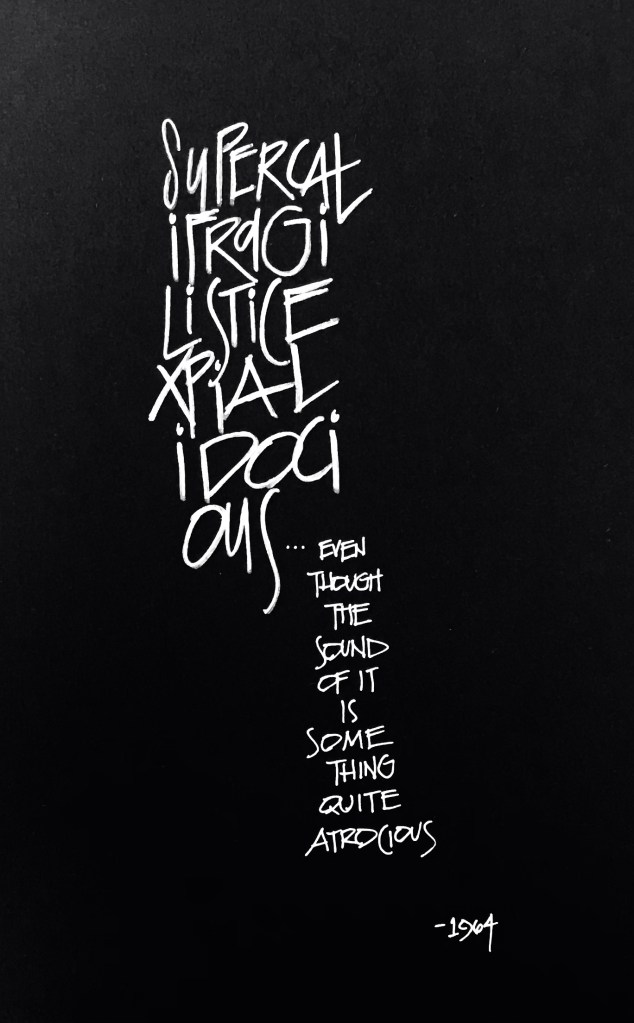 SuPERCAL
iFRaGi
LiSTiCE
XPiAL
iDOCi
OuS... EVEN
THOUGH
THE
SOUND
OF IT
IS
SOME
THING
QUITE
ATROCIOUS
-1964